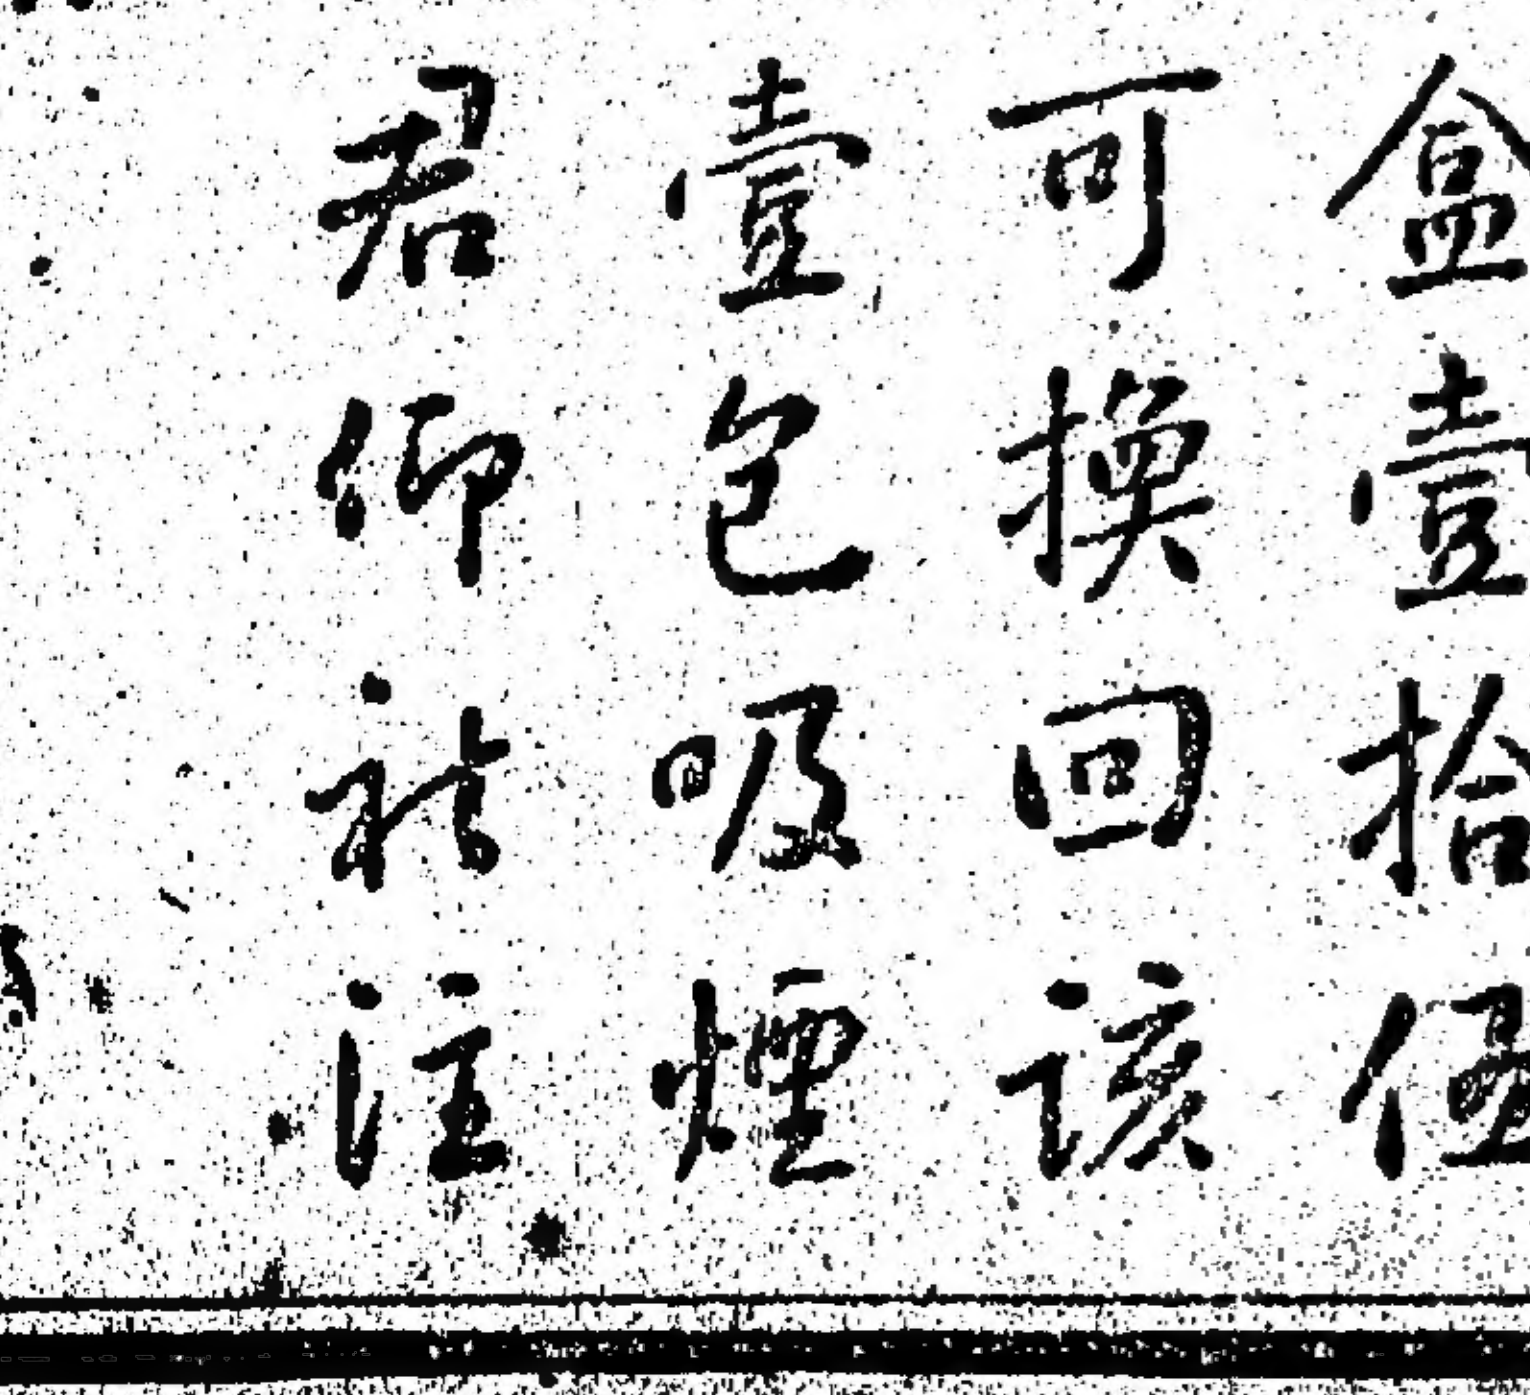 盒壹拾個
可換回該
壹包吸煙
君仰祈注